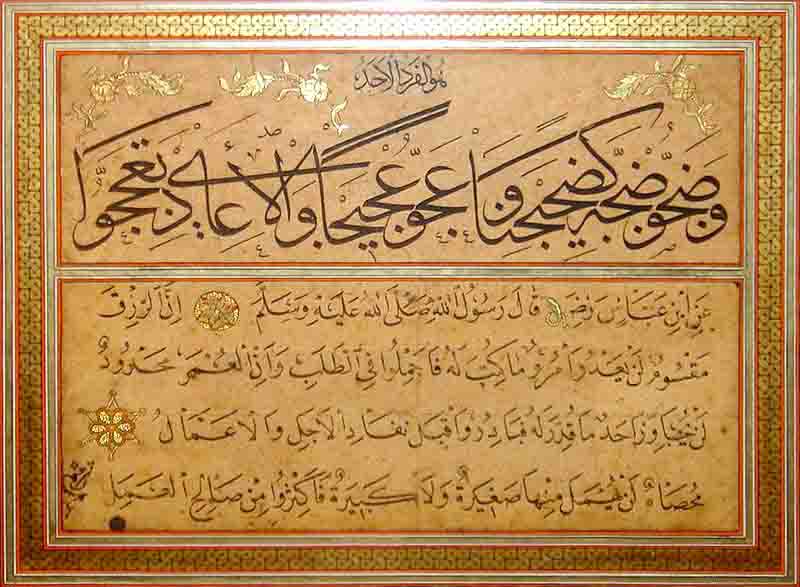 هو الفرد الاحد
وضجو ضجة كضجيجنا عجو عجيجا والاعادي
عن ابن عباس رضي قال رسول الله صلى الله عليه وسلم ان الرزق
مقسوم لن يعدو امرؤ ما كتب له فاجملوا في الطلب وان العمر محدود
لن يجاوز احد ما قدر له فبادروا قبل نفاد الاجل والاعمال
محصاة لن يهمل منها صغيرة ولا كبيرة فاكثروا من صالح العمل